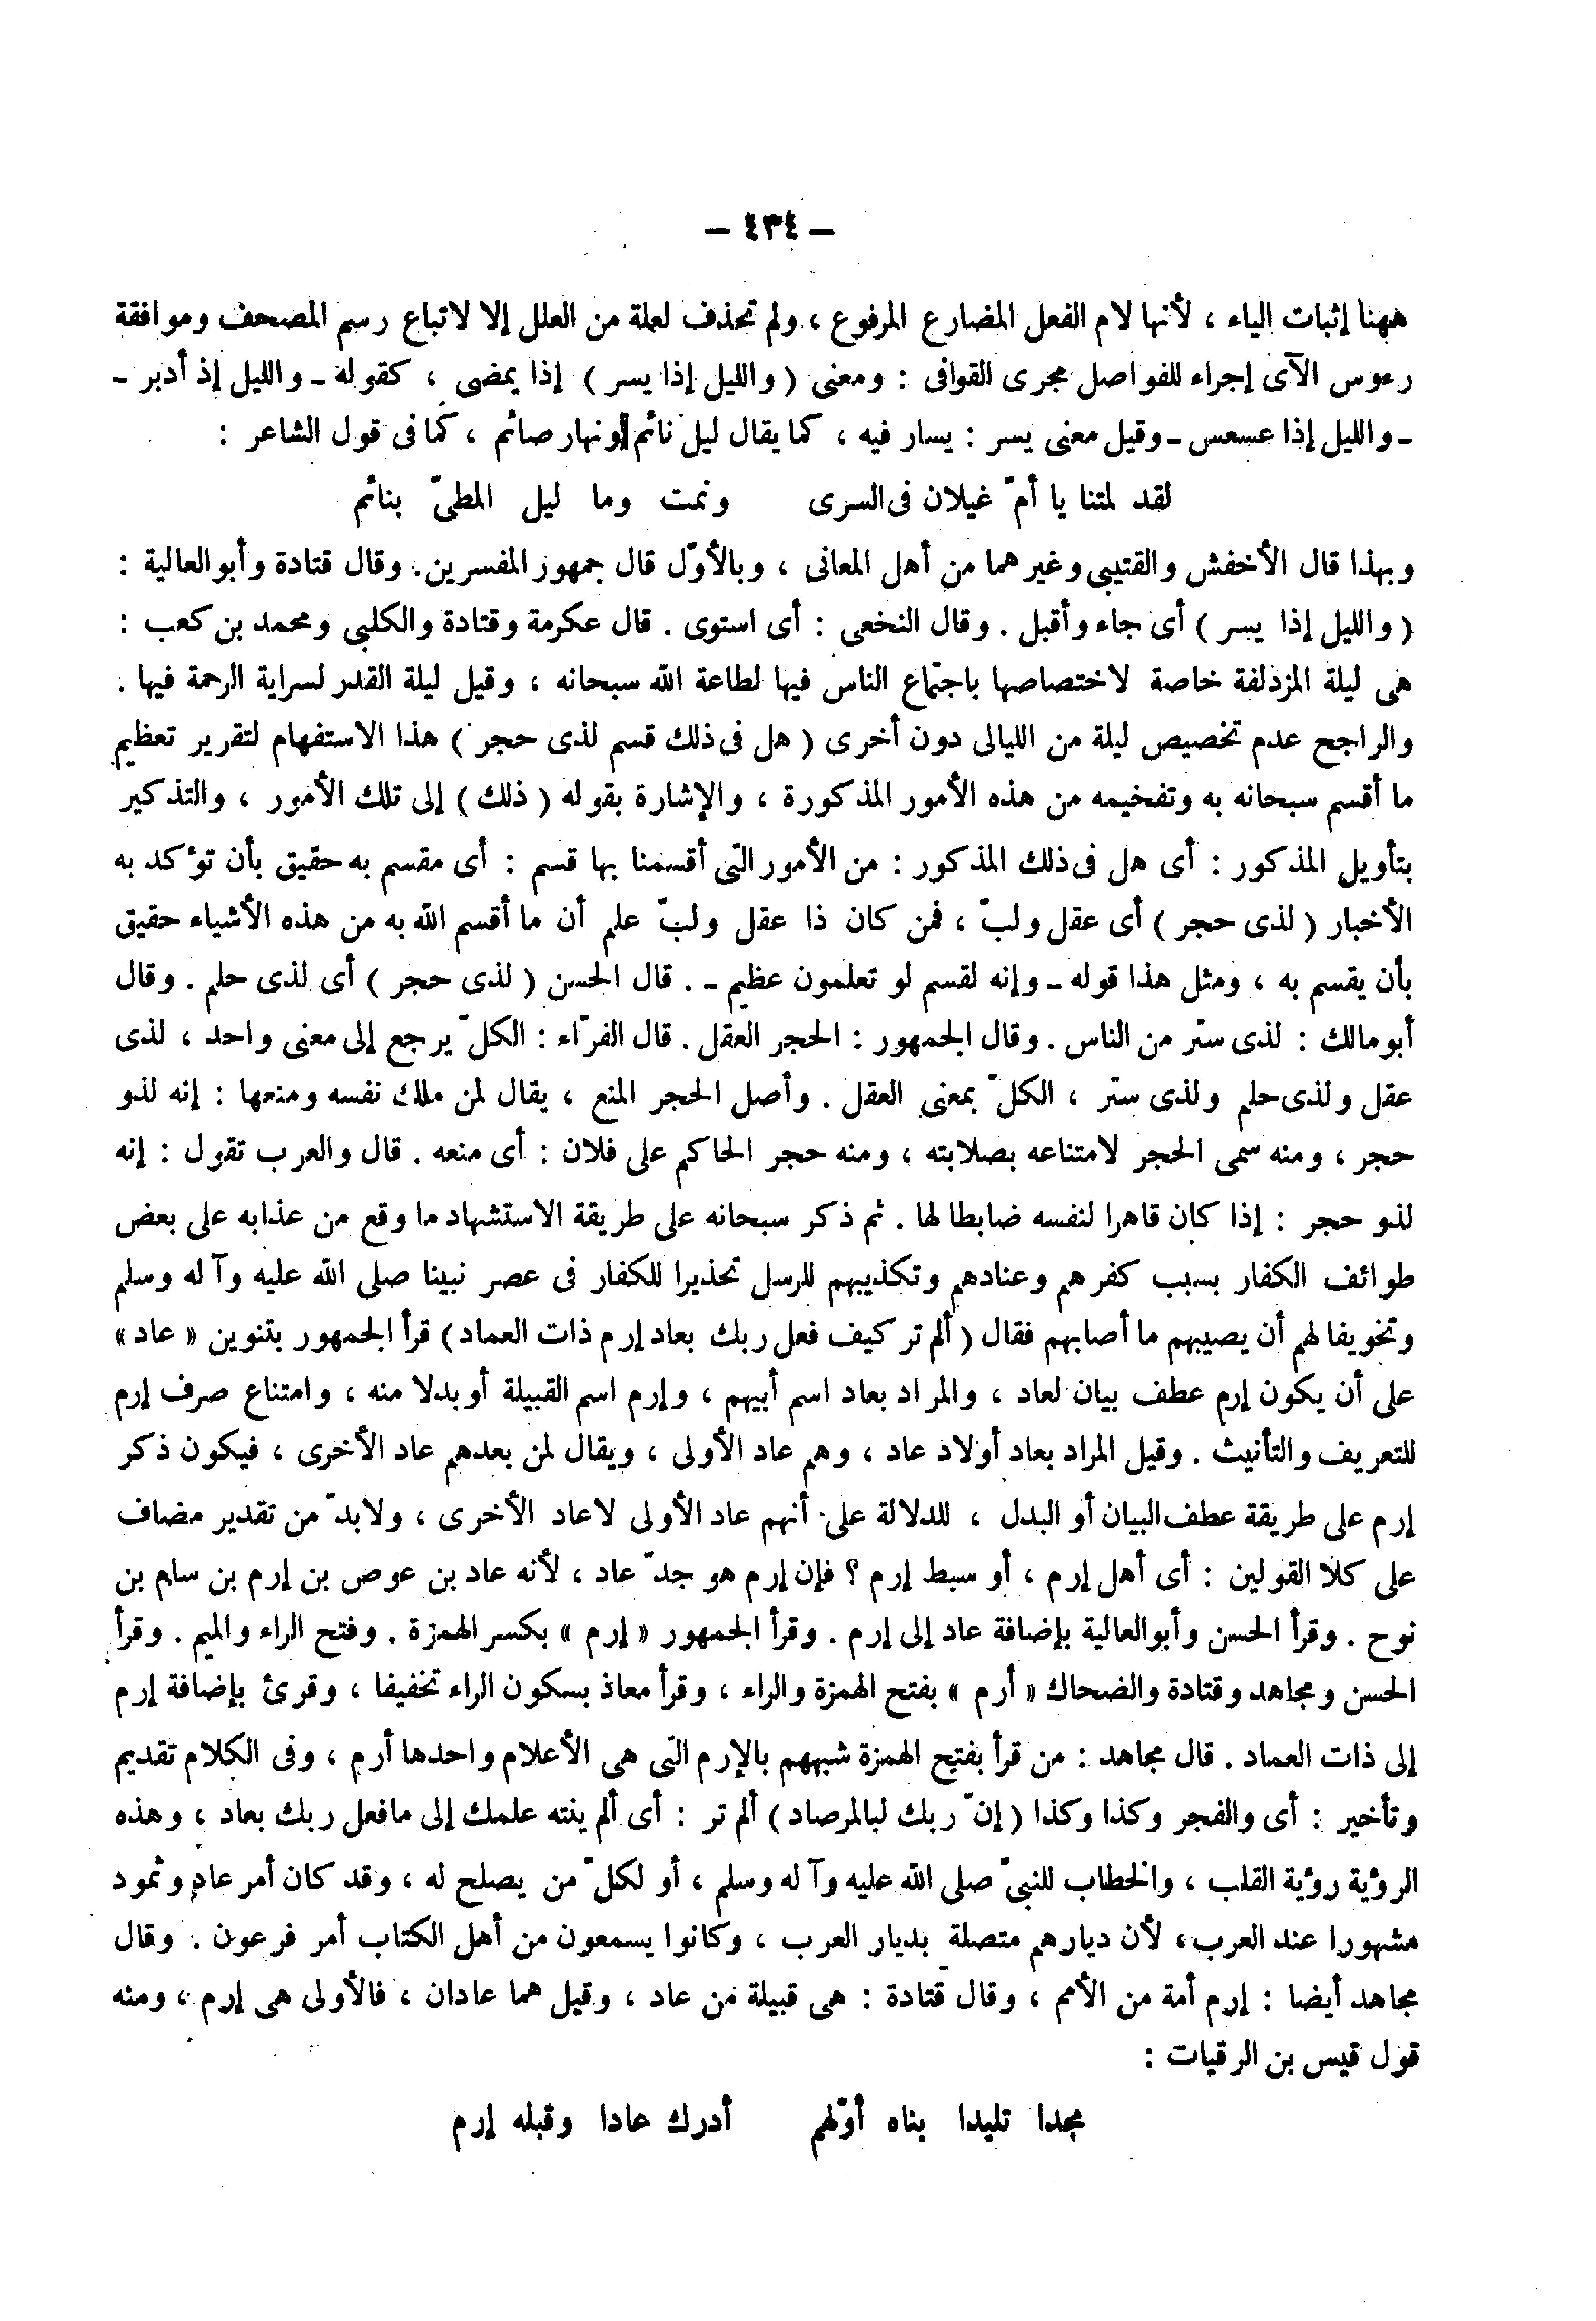 – ٤٣٤ –
ههنا إثبات الياء ، لأنها لام الفعل المضارع المرفوع ، ولم تحذف لعلة من العلل إلا لاتباع رسم المصحف وموافقة
رءوس الآى إجراء للفواصل مجرى القوافى : ومعنى ( والليل إذا يسر ) إذا يمضى ، كقوله ـ والليل إذ أدبر ـ
ـ والليل إذا عسعس ـ وقيل معنى يسر : يسار فيه ، كما يقال ليل نائم ونهار صائم ، كما فى قول الشاعر :
لقد لمتنا يا أمّ غيلان فى السرى ونمت وما ليل المطىّ بنائم
وبهذا قال الأخفش والقتيبى وغيرهما من أهل المعانى ، وبالأوّل قال جمهور المفسرين. وقال قتادة وأبوالعالية :
( والليل إذا يسر ) أى جاء وأقبل . وقال النخعى : أى استوى . قال عكرمة وقتادة والكلبى ومحمد بن كعب :
هى ليلة المزدلفة خاصة لاختصاصها باجتماع الناس فيها لطاعة الله سبحانه ، وقيل ليلة القدر لسراية الرحمة فيها .
والراجح عدم تخصيص ليلة من الليالى دون أخرى ( هل فى ذلك قسم لذى حجر ) هذا الاستفهام لتقرير تعظيم
ما أقسم سبحانه به وتفخيمه من هذه الأمور المذكورة ، والإشارة بقوله ( ذلك ) إلى تلك الأمور ، والتذكير
بتأويل المذكور : أى هل فى ذلك المذكور : من الأمور التى أقسمنا بها قسم : أى مقسم به حقيق بأن تؤكد به
الأخبار ( لذى حجر ) أى عقل ولبّ ، فمن كان ذا عقل ولبّ علم أن ما أقسم الله به من هذه الأشياء حقيق
بأن يقسم به ، ومثل هذا قوله ـ وإنه لقسم لو تعلمون عظيم ـ . قال الحسن ( لذى حجر ) أى لذى حلم . وقال
أبومالك : لذى ستر من الناس . وقال الجمهور : الحجر العقل . قال الفرّاء : الكلّ يرجع إلى معنى واحد ، لذى
عقل ولذى حلم ولذى ستر ، الكلّ بمعنى العقل . وأصل الحجر المنع ، يقال لمن ملك نفسه ومنعها : إنه لذو
حجر ، ومنه سمى الحجر لامتناعه بصلابته ، ومنه حجر الحاكم على فلان : أى منعه . قال والعرب تقول : إنه
لذو حجر : إذا كان قاهرا لنفسه ضابطا لها . ثم ذكر سبحانه على طريقة الاستشهاد ما وقع من عذابه على بعض
طوائف الكفار بسبب كفرهم وعنادهم وتكذيبهم للرسل تحذيرا للكفار فى عصر نبينا صلى الله عليه وآله وسلم
وتخويفا لهم أن يصيبهم ما أصابهم فقال ( ألم تر كيف فعل ربك بعاد إرم ذات العماد ) قرأ الجمهور بتنوين « عاد »
على أن يكون إرم عطف بيان لعاد ، والمراد بعاد اسم أبيهم ، وإرم اسم القبيلة أو بدلا منه ، وامتناع صرف إرم
للتعريف والتأنيث . وقيل المراد بعاد أولاد عاد ، وهم عاد الأولى ، ويقال لمن بعدهم عاد الأخرى ، فيكون ذكر
إرم على طريقة عطف البيان أو البدل ، للدلالة على أنهم عاد الأولى لاعاد الأخرى ، ولابدّ من تقدير مضاف
على كلا القولين : أى أهل إرم ، أو سبط إرم ؟ فإن إرم هو جدّ عاد ، لأنه عاد بن عوص بن إرم بن سام بن
نوح . وقرأ الحسن وأبوالعالية بإضافة عاد إلى إرم . وقرأ الجمهور « إرم » بكسر الهمزة . وفتح الراء والميم . وقرأ
الحسن ومجاهد وقتادة والضحاك « أرم » بفتح الهمزة والراء ، وقرأ معاذ بسكون الراء تخفيفا ، وقرئ بإضافة إرم
إلى ذات العماد . قال مجاهد : من قرأ بفتح الهمزة شبههم بالإرم التى هى الأعلام واحدها أرم ، وفى الكلام تقديم
وتأخير : أى والفجر وكذا وكذا ( إنّ ربك لبالمرصاد ) ألم تر : أى ألم ينته علمك إلى مافعل ربك بعاد ، وهذه
الرؤية رؤية القلب ، والخطاب للنبىّ صلى الله عليه وآله وسلم ، أو لكلّ من يصلح له ، وقد كان أمر عاد وثمود
مشهورا عند العرب ، لأن ديارهم متصلة بديار العرب ، وكانوا يسمعون من أهل الكتاب أمر فرعون . وقال
مجاهد أيضا : إرم أمة من الأمم ، وقال قتادة : هى قبيلة من عاد ، وقيل هما عادان ، فالأولى هى إرم ، ومنه
قول قيس بن الرقيات :
مجدا تليدا بناه أوّلهم أدرك عادا وقبله إرم